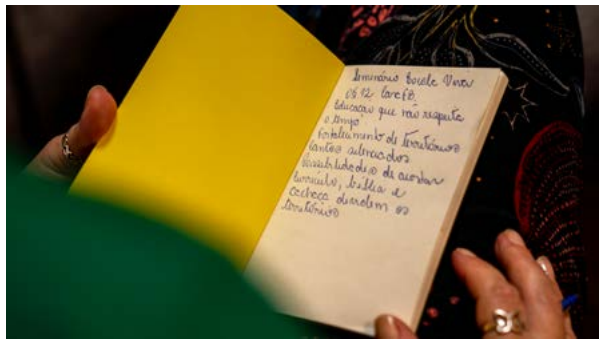 Seminário Escola Viva
06.12
Educação que não respeita
o tempo
Fortalecimento de territórios
cantos silenciados
possibilidades de acordar
currículo, bíblia e
cachaça
territórios